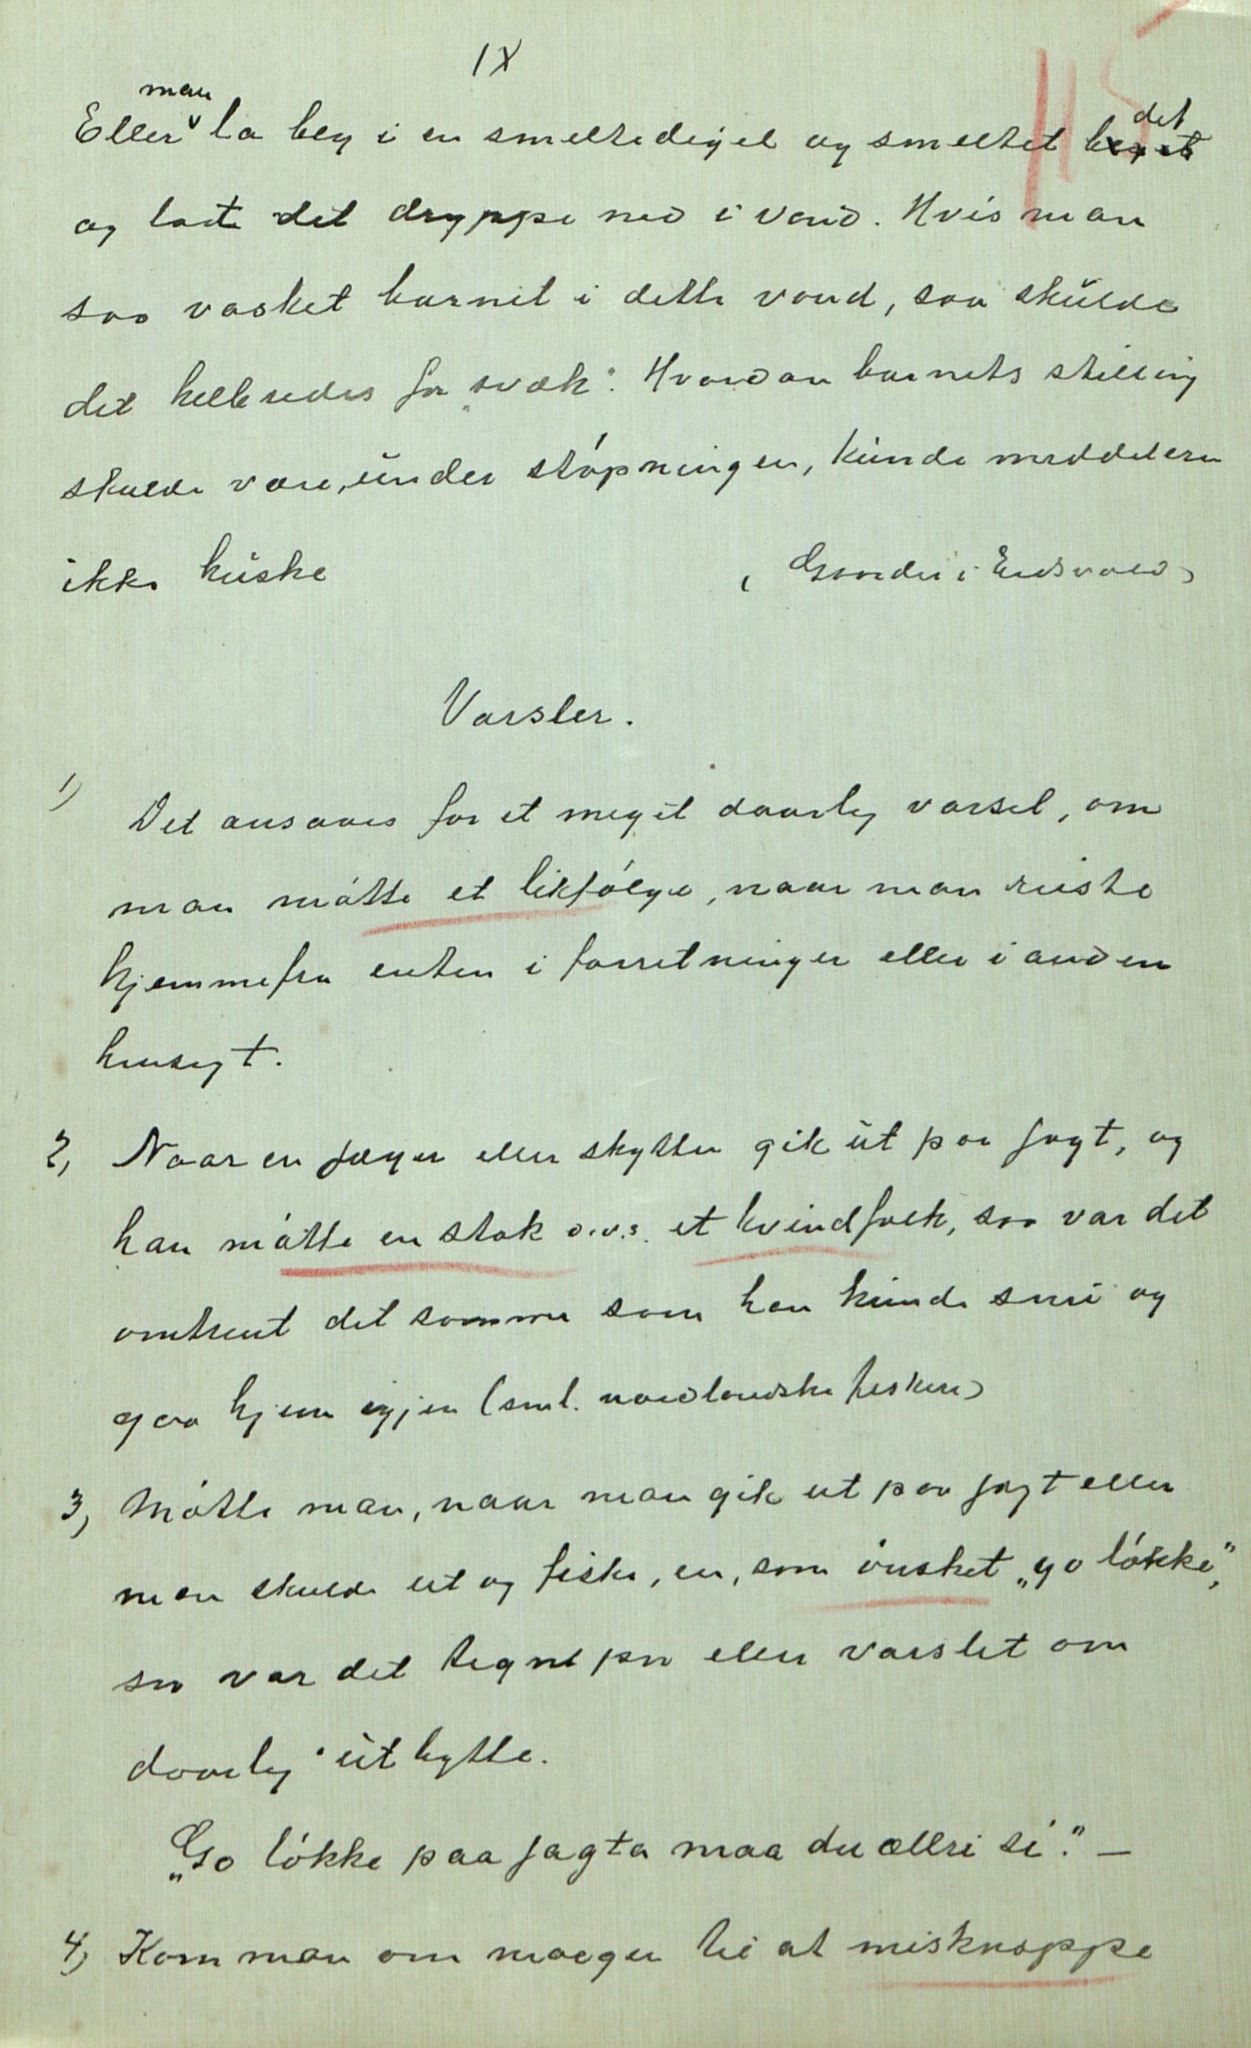 IX
115
Eller man la bly i en smeltedigel og smeltet det
og lot det dryppe ned i vand. Hvis man
saa vasket barnet i dette vand, saa skulde
det helbredes for svæk. Hvordan barnets stilling
skulde være, under støpningen, kunde meddeleren
ikke huske ( i Eidsvold)
Varsler.
1) Det ansaaes for et meget daarlig varsel, om
man møtte et likfølge, naar man reiste
hjemmefra enten i forretninger eller i anden
hensigt.
2, Naar en jæger eller skytter gik ut paa jagt, og
han møtte en stak o.v.s. et kvindfolk, saa var det
omtrent det samme som han kunde snu og
gaa hjem igjen (sml. nordlandske fiskere)
3, Møtte man, naar man gik ut paa jagt eller
man skulde ut og fiske, en, som ønsket „go løkke",
saa var det tegnet paa eller varslet om
daarlig utbytte.
„Go løkke paa jagta maa du ællri si". —
4) Kom man om morgen til at misknappe